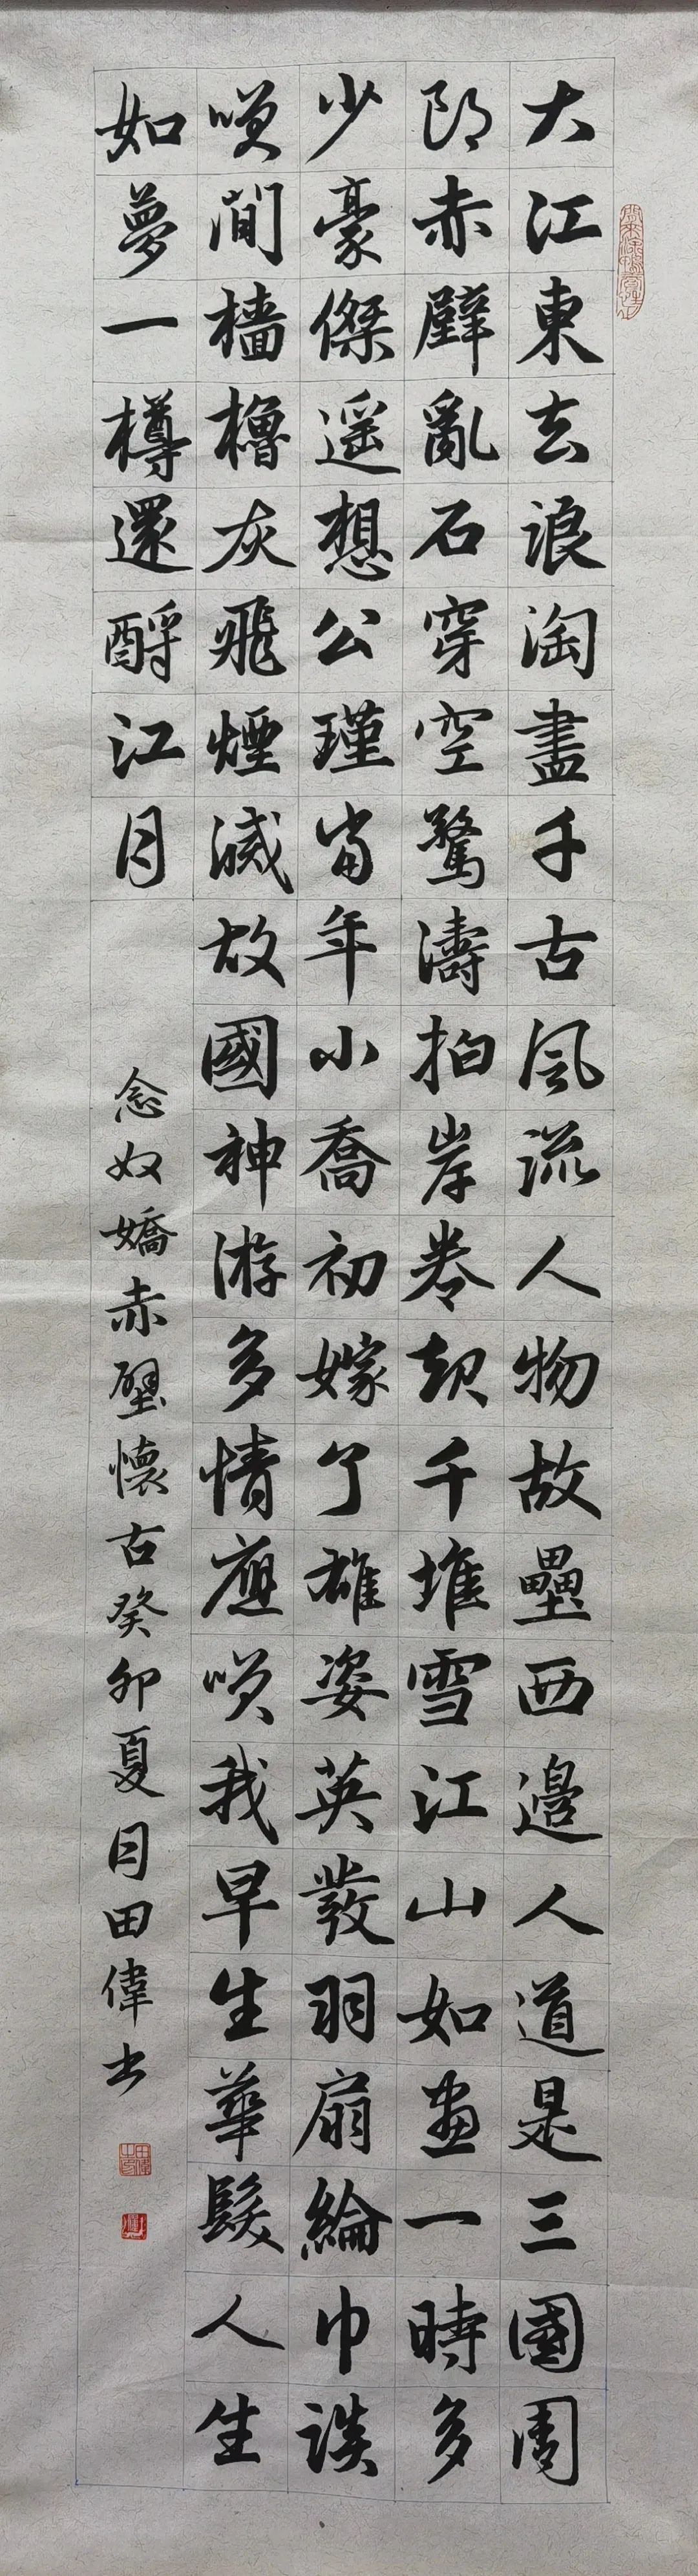 大江東去浪淘盡千古風流人物故壘西邊人道是三國周
郎赤壁亂石穿空驚濤拍岸卷起千堆雪江山如畫一時多
少豪傑遥想公瑾當年小喬初嫁了雄姿英發羽扇綸巾談
笑間檣櫓灰飛煙滅故國神游多情應笑我早生華髮人生
如夢一樽還酹江月
念奴嬌赤壁懷古癸卯夏月田偉書